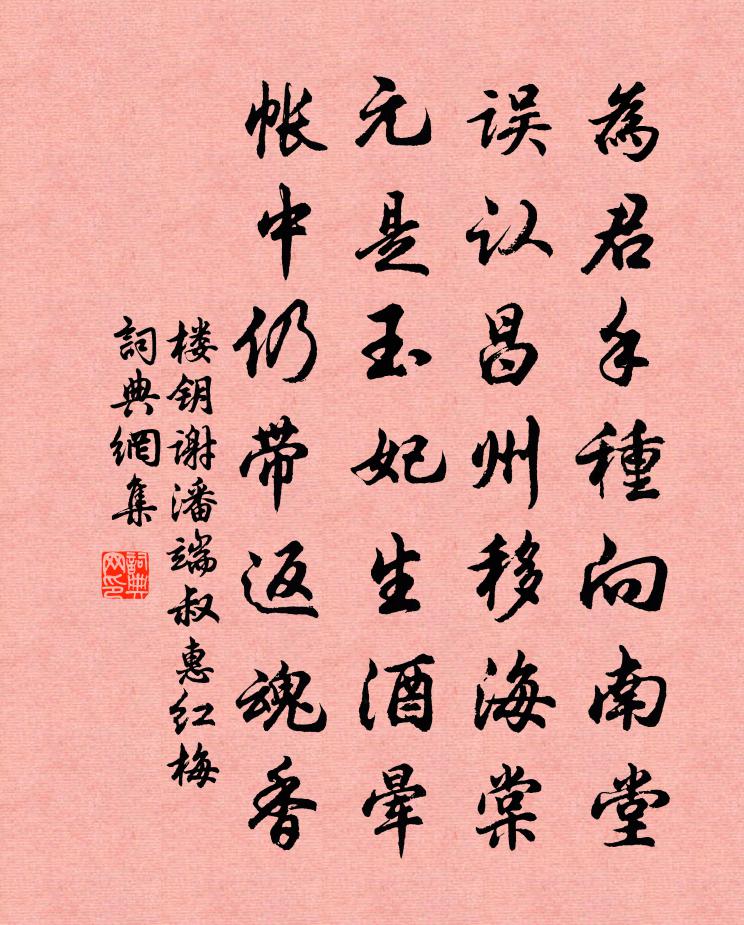 為君手種向南堂
误认昌州移海棠
元是玉妃生酒晕
帐中仍带返魂香
楼钥谢潘端叔惠红梅
詞典網集
詞典网印